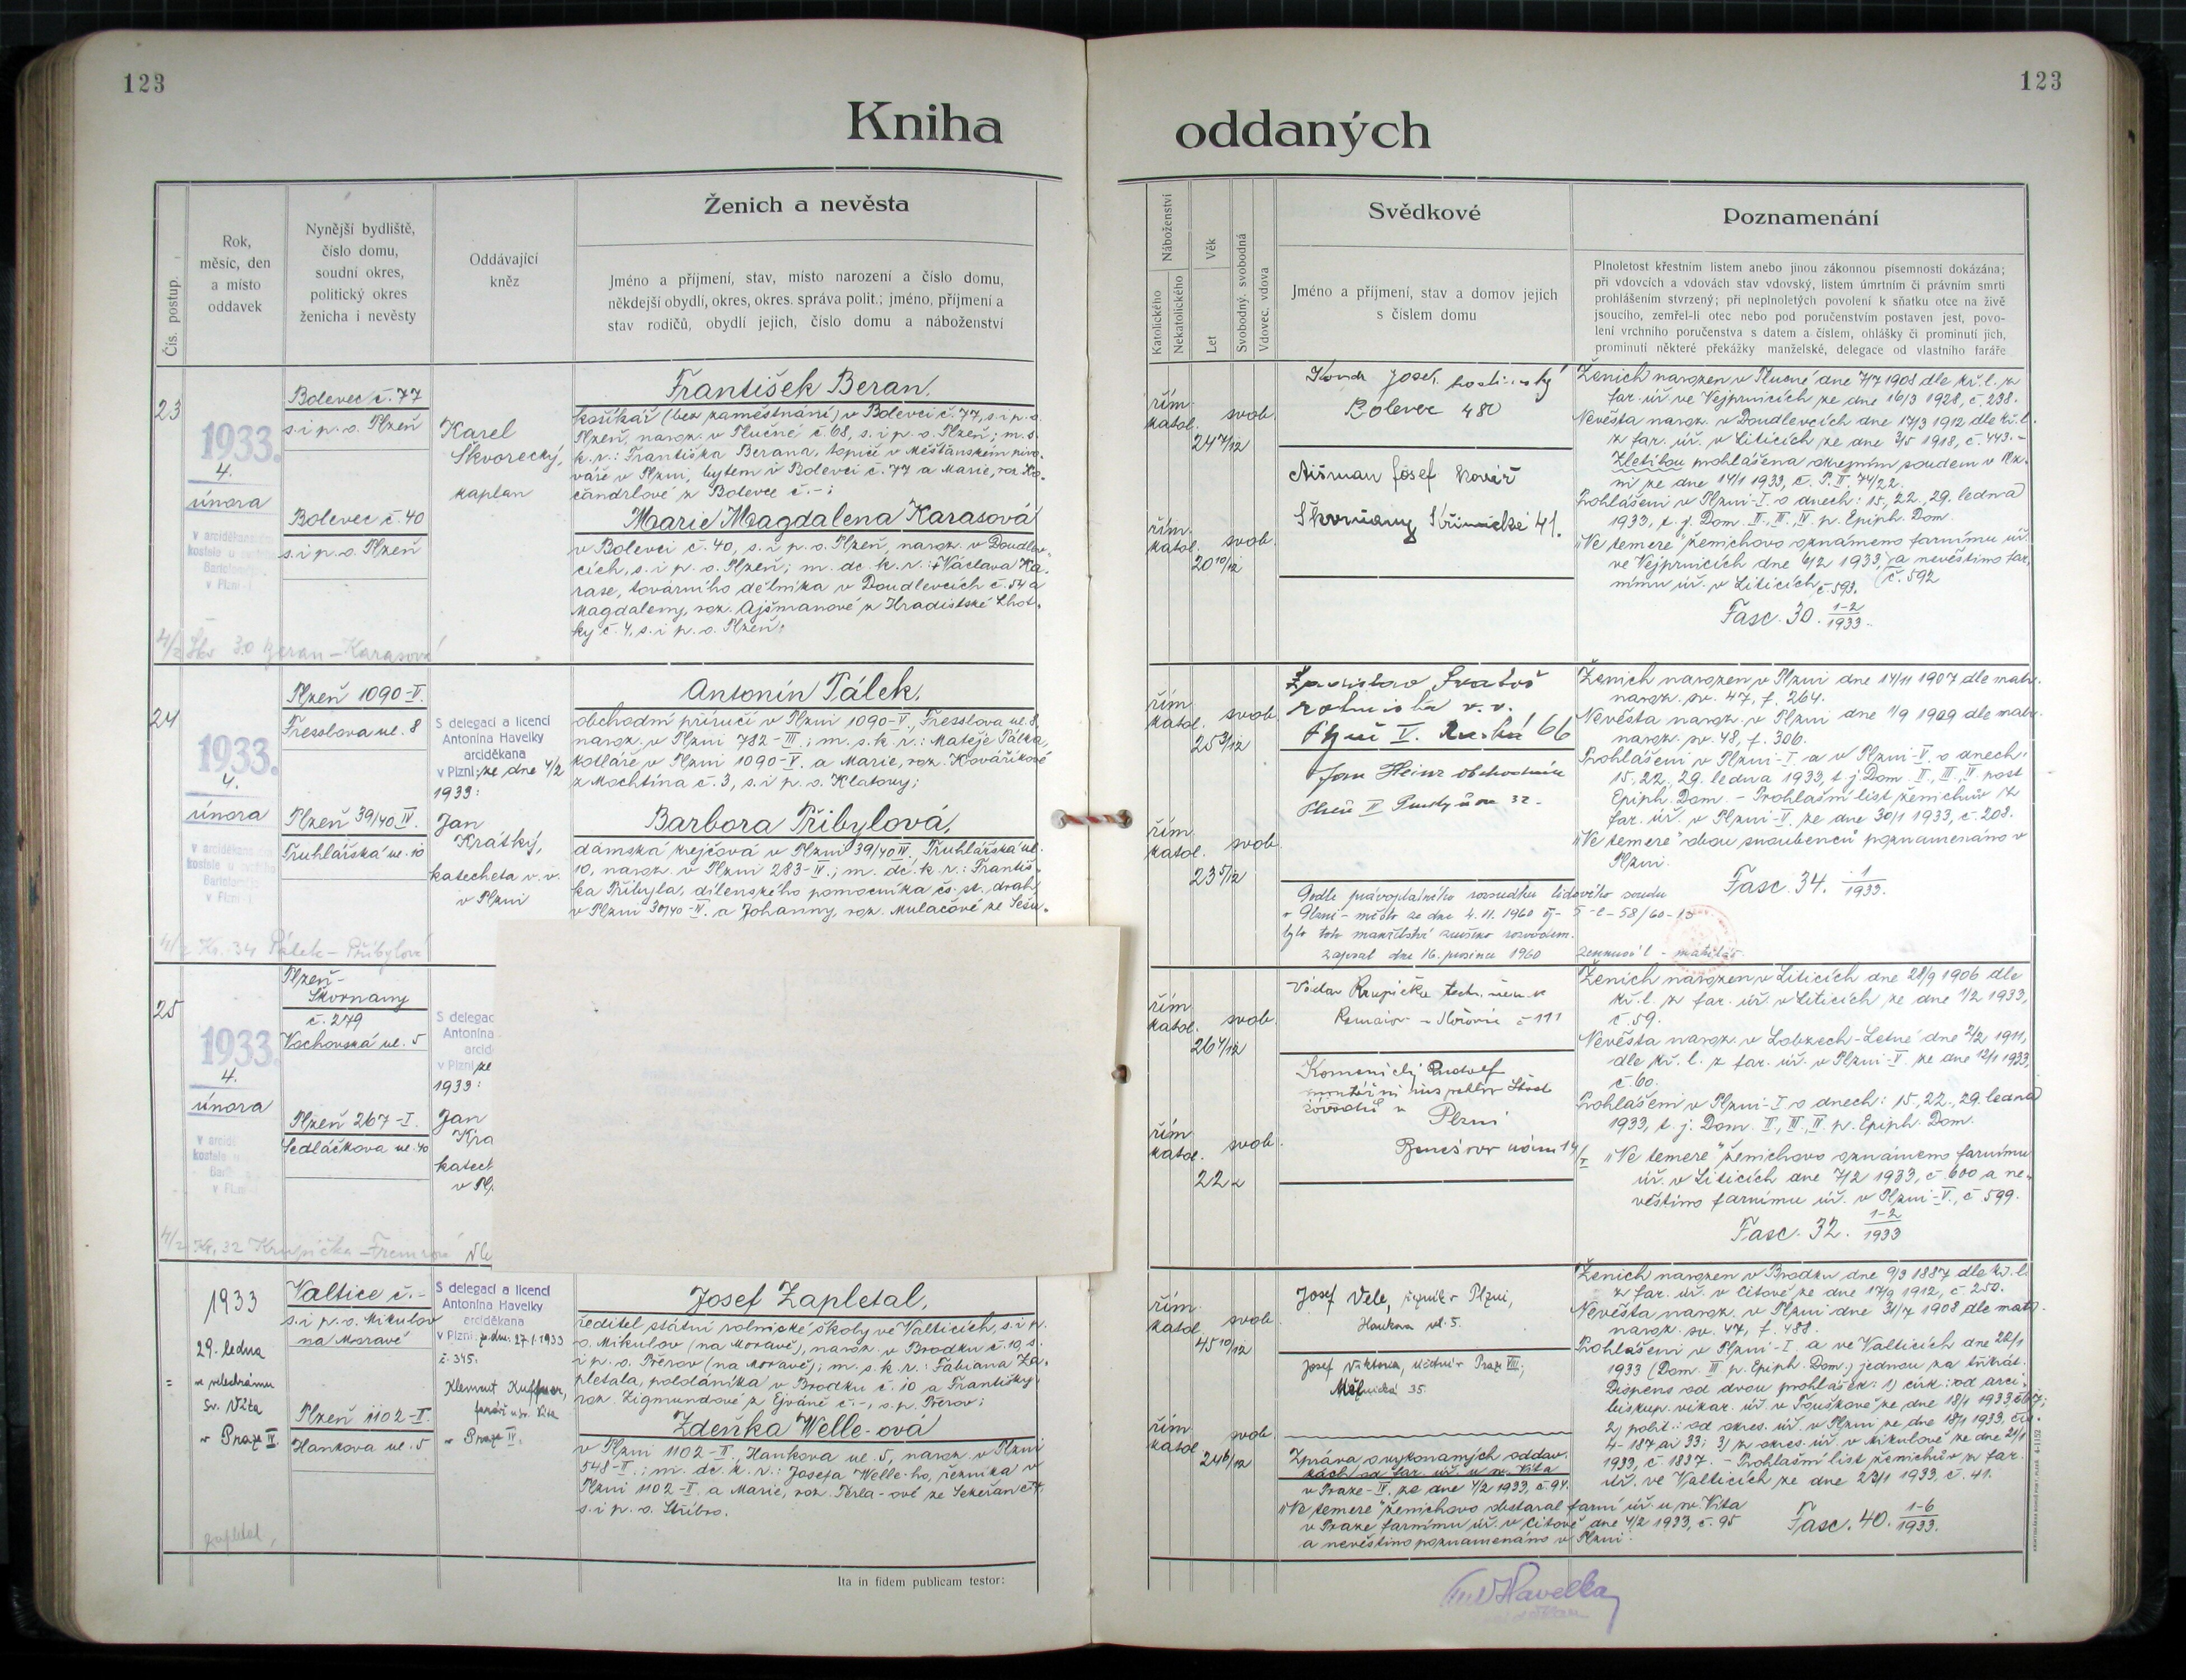 123
Kniha
Čís. postup.
Rok,
měsíc, den
a místo
oddavek
Nynější bydliště,
číslo domu,
soudní okres,
politický okres
ženicha i nevěsty
Oddávající
kněz
Ženich a nevěsta
Jméno a příjmení, stav, místo narození a číslo domu,
někdejší obydlí, okres, okres. správa polit.; jméno, příjmení a
stav rodičů, obydlí jejich, číslo domu a náboženství
23
1933.
4.
února
v arciděkanském
kostele u svatého
Bartoloměje
v Plzni-I
Bolevec č. 77
s. i p. o. Plzeň
Bolevec č. 40
s. i p. o. Plzeň
Karel
Škvorecký,
kaplan
František Beran,
košíkář (bez zaměstnání) v Bolevci č. 77, s. i p. o.
Plzeň, naroz. v Plučné č. 68, s. i p. o. Plzeň; m. s.
k. r.: Františka Berana, topiče v Měšťanském pivo-
váře v Plzni, bytem v Bolevci č. 77 a Marie, roz. Ko-
čandrlové z Bolevce č. -;
Marie Magdalena Karasová
v Bolevci č. 40, s. i p. o. Plzeň, naroz. v Doudlev-
cích, s. i p. o. Plzeň; m. dc. k. r.: †Václava Ka-
rase, továrního dělníka v Doudlevcích č. 54 a
Magdaleny, roz. Ajšmanové z Hradištské Lhot-
ky č. 4, s. i p. o. Plzeň;
4/2 Škv 30 Beran - Karasová
24
1933.
4.
února
v arciděkanském
kostele u svatého
Bartoloměje
v Plzni-I
Plzeň 1090-V.
Tresslova ul. 8
Plzeň 39/40 IV.
Truhlářská ul. 10
S delegací a licencí
Antonína Havelky
arciděkana
v Plzni: ze dne 4/2
1933:
Jan
Krátký,
katecheta v. v.
v Plzni
Antonín Pálek,
obchodní příručí v Plzni 1090-V., Tresslova ul. 8,
naroz. v Plzni 782-III.; m. s. k. r.: Matěje Pálka,
kotláře v Plzni 1090-V. a Marie, roz. Kováříkové
z Mochtína č. 3, s. i p. o. Klatovy;
Barbora Přibylová,
dámská krejčová v Plzni 39/40 IV., Truhlářská ul.
10, naroz. v Plzni 283-IV.; m. dc. k. r.: Františ-
ka Přibyla, dílenského pomocníka čs. st. drah
v Plzni 39/40-IV. a Johanny, roz. Mulačové ze Sešu-
4/2 Kr. 34 Pálek - Přibylová
25
1933.
4.
února
v arciděk
kostele u
Bart
v Plzni-I
Plzeň-
Skvrňany
č. 279
Vochovská ul. 5
Plzeň 267-I.
Sedláčkova ul. 40
S delegac
Antonína
arcid
v Plzni ze
1933:
Jan
Krá
katech
v Pl
4/2 Kr. 32 Krupička -
1933
29. ledna
v chrámu
sv. Víta
v Praze IV.
Valtice č. -
s. i p. o. Mikulov
na Moravě
Plzeň 1102-II.
Hankova ul. 5
S delegací a licencí
Antonína Havelky
arciděkana
v Plzni: ze dne 27.1.1933
č. 345.
Klement Kuffner,
farář u sv. Víta
v Praze IV.
Josef Zapletal,
ředitel státní rolnické školy ve Valticích, s. i p.
o. Mikulov (na Moravě), naroz. v Brodku č. 10, s.
i p. o. Přerov (na Moravě); m. s. k. r.: Fabiana Za-
pletala, pololáníka v Brodku č. 10 a Františky,
roz. Zigmundové z Ejváně č. -, s. p. Přerov;
Zdeňka Welle-ová
v Plzni 1102-II., Hankova ul. 5, naroz. v Plzni
548-II.; m. dc. k. r.: Josefa Welle-ho, řezníka v
Plzni 1102-II. a Marie, roz. Perla-ové ze Sekeřan č. 7,
s. i p. o. Stříbro.
Zapletal,
Ita in fidem publicam testor:
123
oddaných
Náboženství
Katolického
Nekatolického
Věk
Let
Svobodný, svobodná
Vdovec, vdova
Svědkové
Jméno a příjmení, stav a domov jejich
s číslem domu
Poznamenání
Plnoletost křestním listem anebo jinou zákonnou písemností dokázána;
při vdovcích a vdovách stav vdovský, listem úmrtním či právním smrti
prohlášením stvrzený; při neplnoletých povolení k sňatku otce na živě
jsoucího, zemřel-li otec nebo pod poručenstvím postaven jest, povo-
lení vrchního poručenstva s datem a číslem, ohlášky či prominutí jich,
prominutí některé překážky manželské, delegace od vlastního faráře
řím.
katol.
svob.
24 7/12
řím.
katol.
svob.
20 10/12
Josef hostinský
Bolevec 480
Aišman Josef kovář
Škvrňany Křimická 41.
Ženich narozen v Plučné dne 7/7 1908 dle kř. l. z
far. úř. ve Vejprnicích ze dne 16/3 1928, č. 238.
Nevěsta naroz. v Doudlevcích dne 17/3 1912 dle kř. l.
z far. úř. v Liticích ze dne 3/5 1918, č. 443. -
Zletilou prohlášena okresním soudem v Plz-
ni ze dne 14/1 1933, č. P. II. 74/22.
Prohlášeni v Plzni-I. o dnech: 15., 22., 29. ledna
1933, t. j. Dom. II., III., IV. p. Epiph. Dom.
„Ne temere" ženichovo oznámeno farnímu úř.
ve Vejprnicích dne 6/2 1933, a nevěstino far-
nímu úř. v Liticích č. 593. (č. 592
Fasc. 30. 1-2/1933.
řím.
katol.
svob.
25 3/12
řím.
katol.
svob.
23 5/12
rotmistr v. v.
Plzeň V. 66
Jan Heinz obchodník
Ženich narozen v Plzni dne 14/11 1907 dle matr.
naroz. sv. 47, f. 264.
Nevěsta naroz. v Plzni dne 1/9 1909 dle matr.
naroz. sv. 48, f. 306.
Prohlášeni v Plzni-I. a v Plzni-V. o dnech:
15., 22., 29. ledna 1933, t. j. Dom. II., III., IV. post
Epiph. Dom. - Prohlašní list ženichův z
far. úř. v Plzni-V. ze dne 30/1 1933, č. 208.
„Ne temere" obou snoubenců poznamenáno v
Plzni.
Fasc. 34. 1/1933.
Podle právoplatného rozsudku lidového soudu
v Plzni-město ze dne 4.11.1960 čj- 5-C-58/60-13
bylo toto manželství zrušeno rozvodem.
Zapsal dne 16. prosince 1960
řím.
katol.
svob.
26 4/12
řím.
katol.
svob.
22
Krupička
č 111
Komenický Rudolf
Plzni
Benešovo nám 14
Ženich narozen v Liticích dne 28/9 1906 dle
kř. l. z far. úř. v Liticích ze dne 1/2 1933,
č. 59.
Nevěsta naroz. v Lobzech-Letné dne 2/2 1911,
dle kř. l. z far. úř. v Plzni-V. ze dne 12/1 1933,
č. 60.
Prohlášeni v Plzni-I. o dnech: 15., 22., 29. ledna
1933, t. j. Dom. II., III., IV. p. Epiph. Dom.
„Ne temere" ženichovo oznámeno farnímu
úř. v Liticích dne 7/2 1933, č. 600 a ne-
věstino farnímu úř. v Plzni-V., č. 599.
Fasc. 32. 1-2/1933
řím.
katol.
svob.
45 10/12
řím.
katol.
svob.
24 6/12
Josef Vele, řezník v Plzni,
Hankova ul. 5.
Josef Viktora, v Praze VIII,
Mělnická 35.
Zpráva o vykonaných oddav-
kách od far. úř. u sv. Víta
v Praze-IV. ze dne 4/2 1933, č. 94.
„Ne temere" ženichovo obstaral farní úř. u sv. Víta
v Praze farnímu úř. v Citově dne 4/2 1933, č. 95
a nevěstino poznamenáno v Plzni.
Ženich narozen v Brodku dne 9/3 1887 dle kř. l.
z far. úř. v Citově ze dne 17/9 1912, č. 250.
Nevěsta naroz. v Plzni dne 31/7 1908 dle matr.
naroz. sv. 47, f. 488.
Prohlášeni v Plzni-I. a ve Valticích dne 22/1
1933 (Dom. III. p. Epiph. Dom.) jednou za třikrát.
Dispens od dvou prohlášek: 1) círk.: od arci-
biskup. vikar. úř. v Touškově ze dne 18/1 1933,
2) polit.: od okres. úř. v Plzni ze dne 18/1 1933,
4-187 ai 33; 3) z okres. úř. v Mikulově ze dne 21/1
1933, č. 1837. - Prohlašní list ženichův z far.
úř. ve Valticích ze dne 23/1 1933, č. 41.
Fasc. 40. 1-6/1933.
Havelka